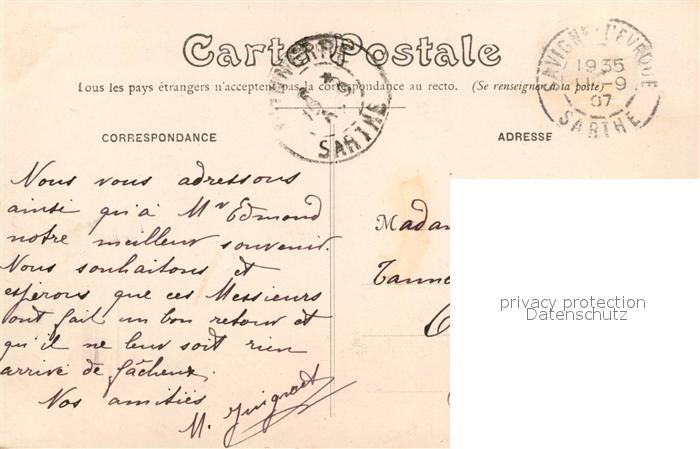 Carte Postale
Tous les pays étrangers n'acceptent pas la correspondance au recto. (Se renseigner à la poste)
SAVIGNÉ-L'EVÊQUE
1935
11-9
07
SARTHE
SARTHE
CORRESPONDANCE
ADRESSE
Nous vous adressons
ainsi qu'à Mr Edmond
notre meilleur souvenir.
Nous souhaitons et
espérons que ces Messieurs
ont fait un bon retour et
qu'il ne leur soit rien
arrivé de fâcheux.
Nos amitiés
M.
Madam
Tanne
privacy protection
Datenschutz